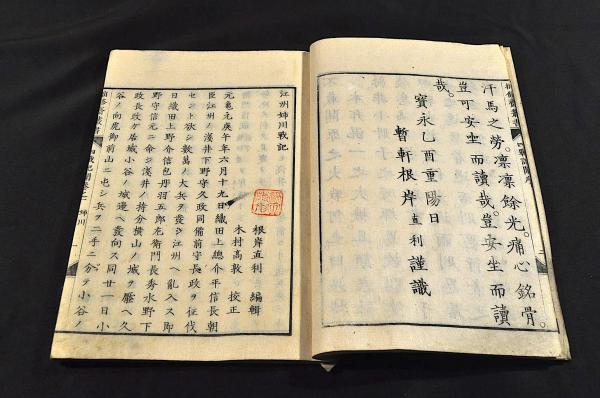 汗馬之勞。凛凛餘光。痛心銘骨。
豈可安坐而讀哉。豈安坐而讀
哉。
寶永乙酉重陽日
暫軒根岸直利謹識
江州姉川戰記
根岸直利 編輯
木村高敦 校正
元亀元庚午年六月十九日織田上總介平信長朝
臣江州ノ淺井下野守久政同備前守長政ヲ征伐
セント欲シ數萬ノ大兵ヲ發シ江州ヘ亂入ス即
日織田上野介信包丹羽五郎左衛門長秀水野下
野守信元ニ命シ淺井ノ持分横山ノ城ヲ壓ヘ久
政長政カ居城小谷ノ城邊ヘ發向ス同廿一日小
谷ノ向虎御前山ニ屯シ兵ヲ二手ニ分テ小谷ノ